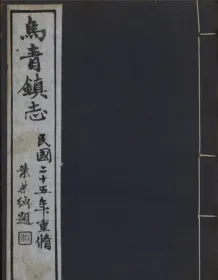 烏青鎮志
民國二十五年重脩
葉恭綽題